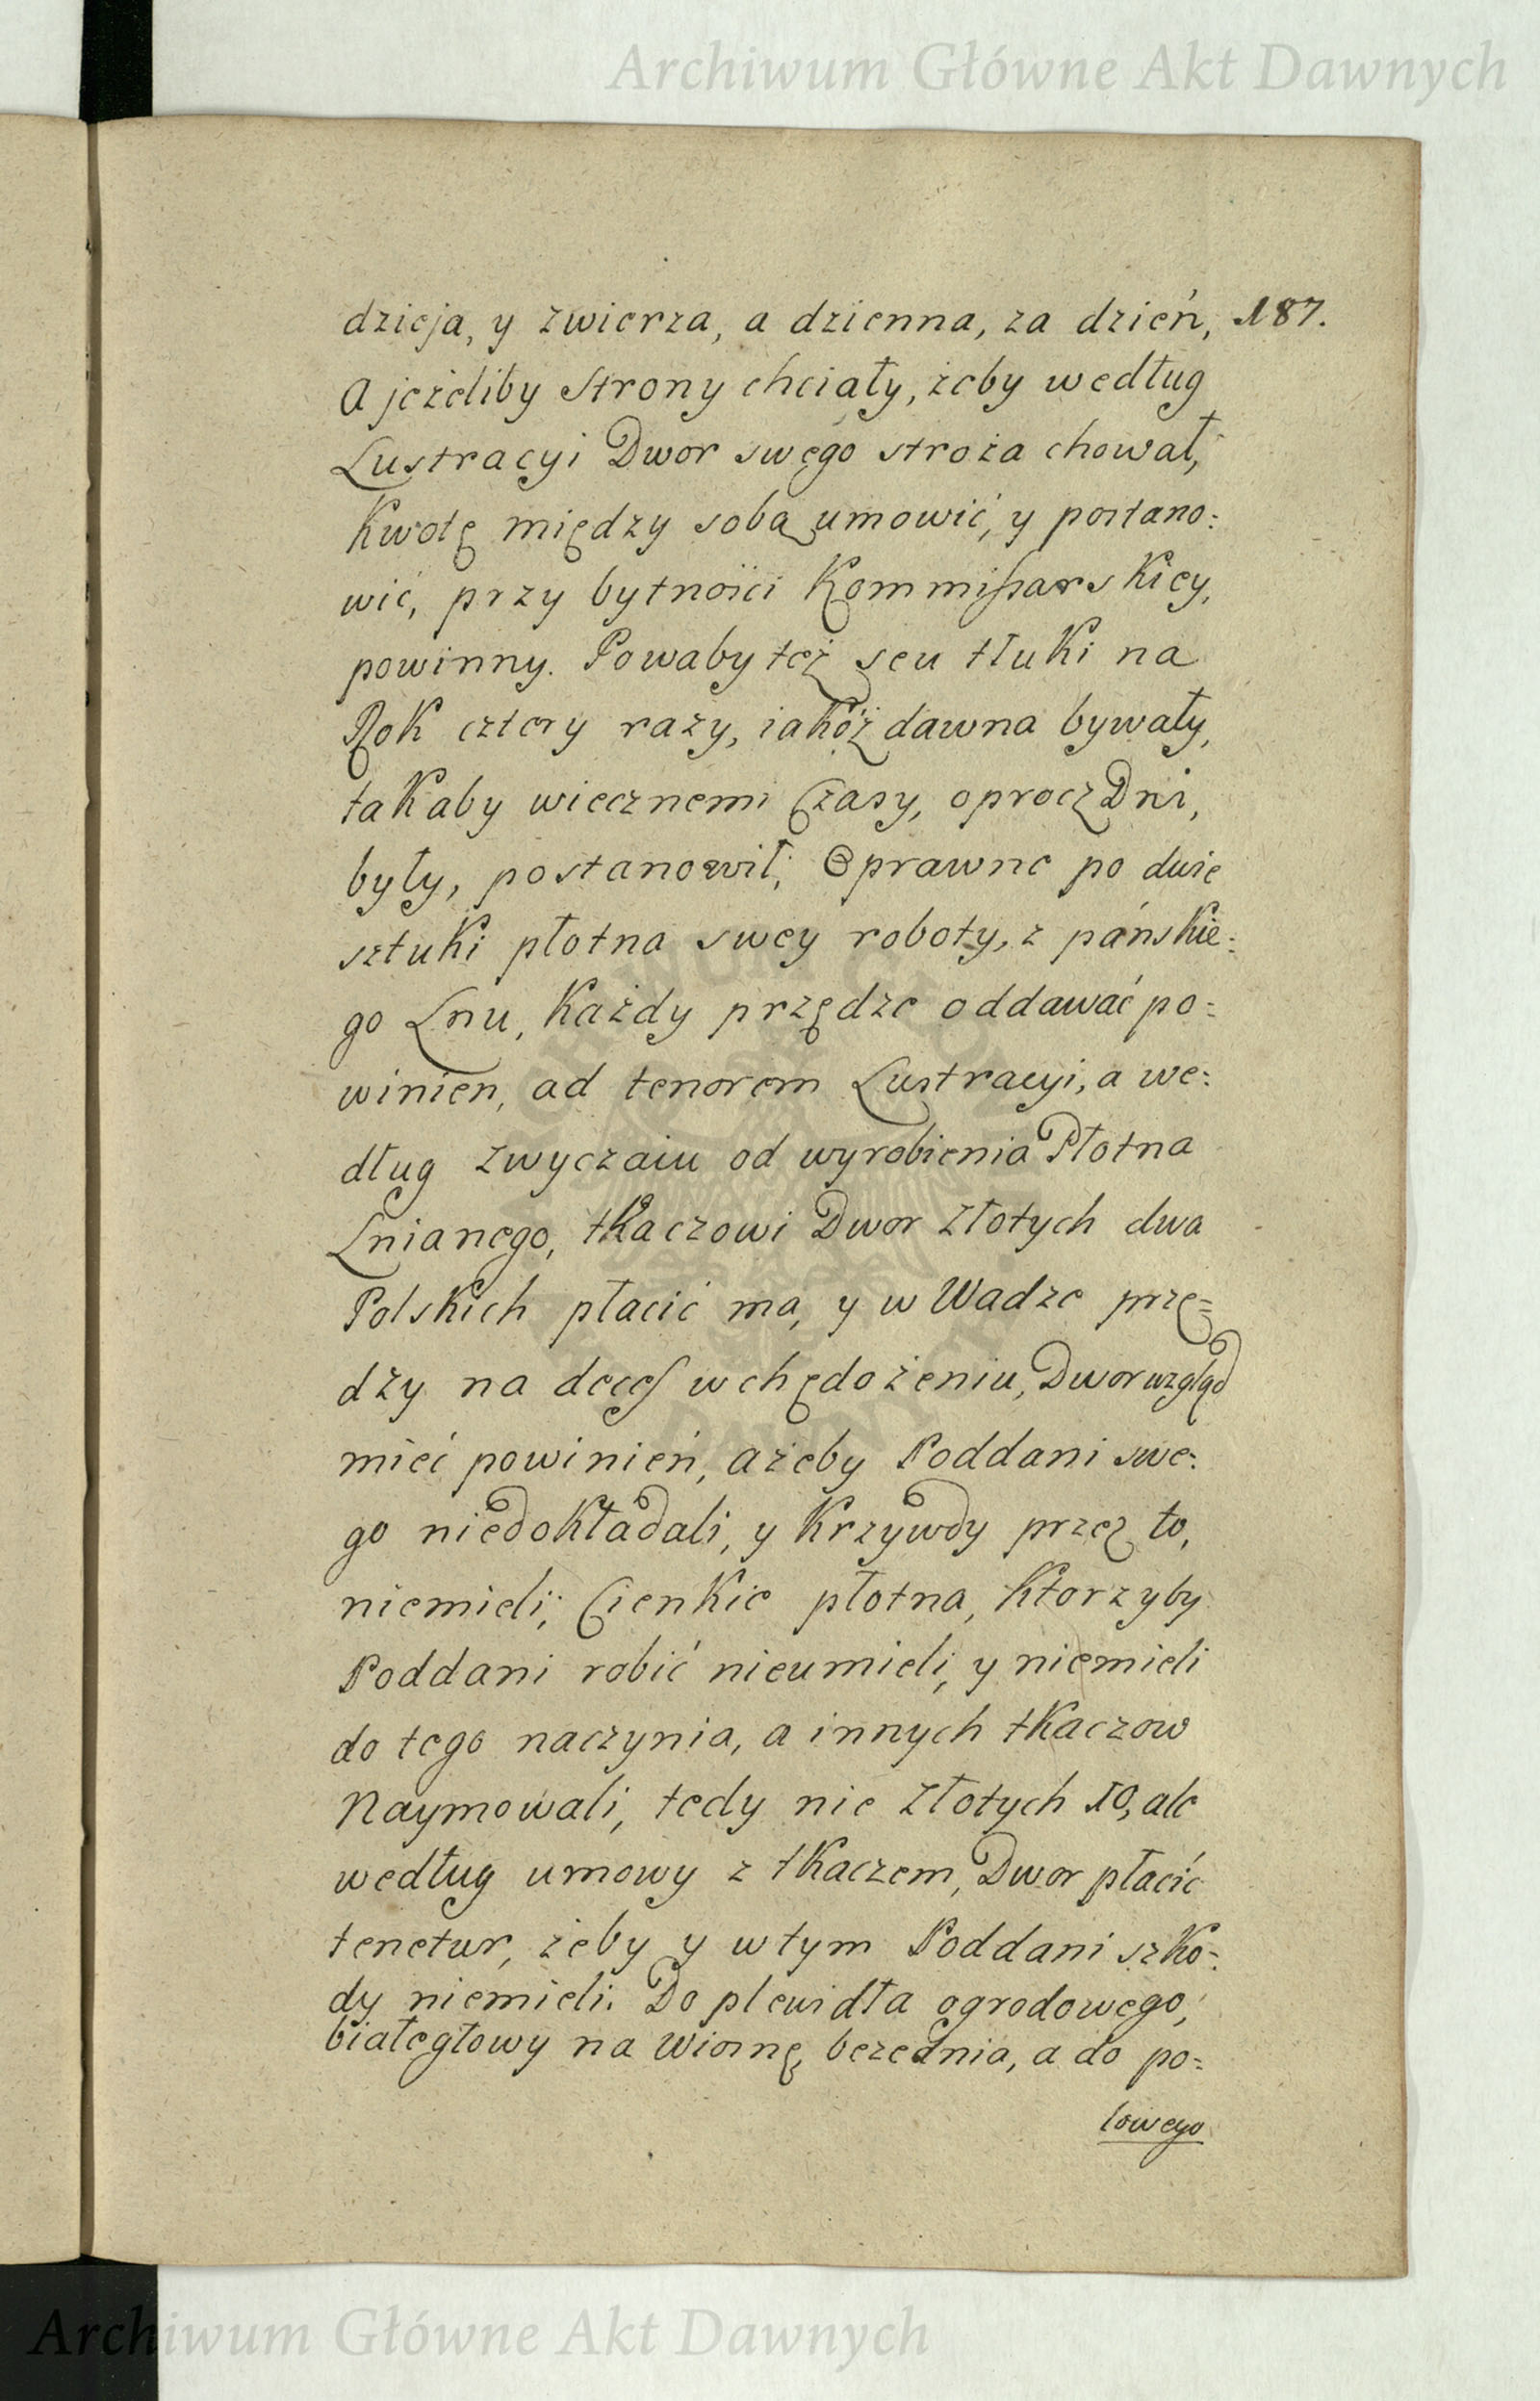 Archiwum Główne Akt Dawnych
dzieja, y zwierza, a dzienna, za dzień, 187.
A jeżeliby Strony chciały, żeby według
Lustracyi Dwor swego stroża chował,
Kwotę między sobą umowić, y postano:
wić, przy bytności Kommißarskiey,
powinny. Powaby też seu tłuki na
Rok cztery razy, iako z dawna bywały,
tak aby wiecznemi Czasy, oprocz Dni,
były, postanowił; Oprawne po dwie
sztuki płotna swey roboty, z pańskie:
go Lnu, Każdy przędze oddawać po:
winien, ad tenorem Lustracyi, a we:
dług zwyczaiu od wyrobienia Płotna
Lnianego, tkaczowi Dwor złotych dwa
Polskich płacić ma, y w Wadze przę=
dzy na deces w chędożeniu, Dwor wzgląd
mieć powinień, ażeby Poddani swe:
go niedokładali, y Krzywdy przez to,
niemieli; Cienkie płotna, Ktorzyby
Poddani robić nieumieli, y niemieli
do tego naczynia, a innych tkaczow
Naymowali, tedy nie złotych 10, ale
według umowy z tkaczem, Dwor płacić
tenetur, żeby y w tym Poddani szko:
dy niemieli. Do plewidła ogrodowego,
białegłowy na Wiosnę bezednia, a do po:
lowego
Archiwum Główne Akt Dawnych